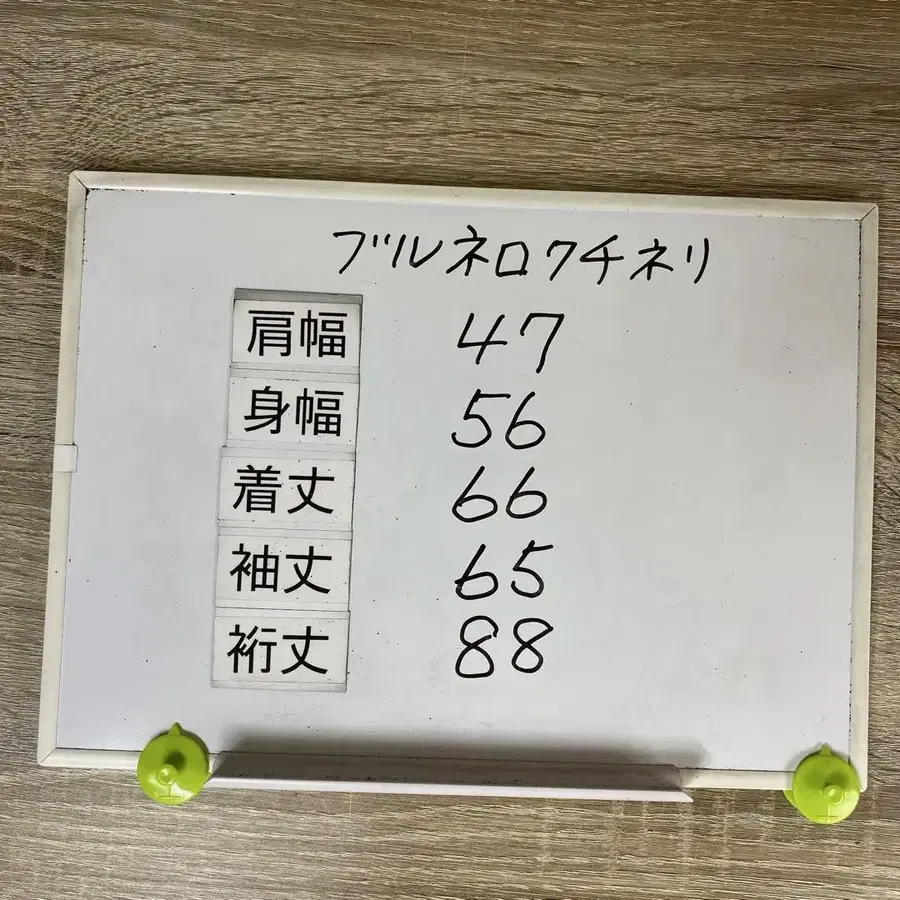 ブルネロクチネリ
肩幅 47
身幅 56
着丈 66
袖丈 65
裄丈 88